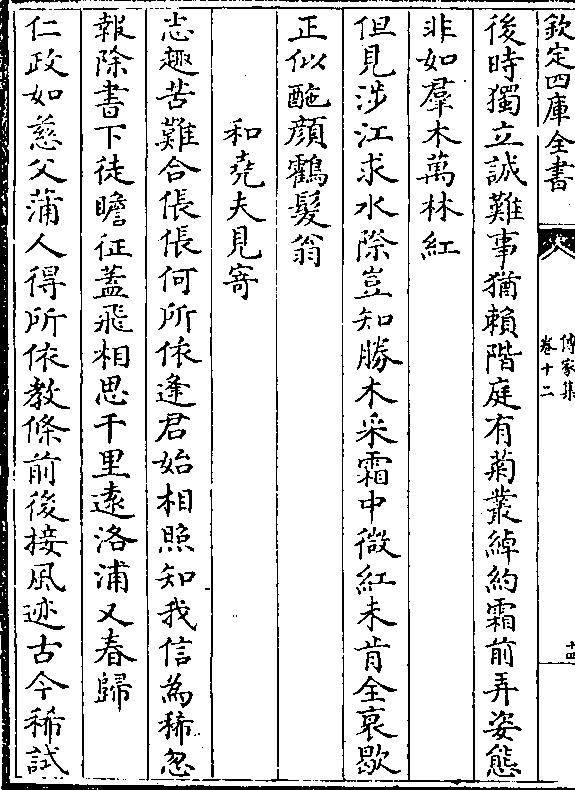 欽定四庫全書
傳家集
卷十二
十四
後時獨立誠難事猶賴階庭有菊叢綽約霜前弄姿態
非如羣木萬林紅
但見涉江求水際豈知勝木采霜中微紅未肯全衰歇
正似酡顔鶴髮翁
和堯夫見寄
志趣苦難合倀倀何所依逢君始相照知我信為稀忽
報除書下徒瞻征蓋飛相思千里逺洛浦又春歸
仁政如慈父蒲人得所依教條前後接風迹古今稀試